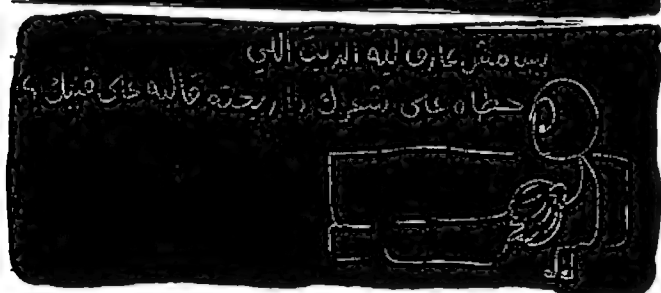 بس مش عارف ليه الزيت اللي
حطاه على شعرك دا ريحته قالبه على